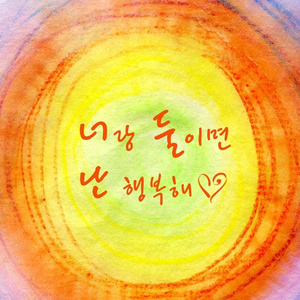 너랑 둘이면
난 행복해♡